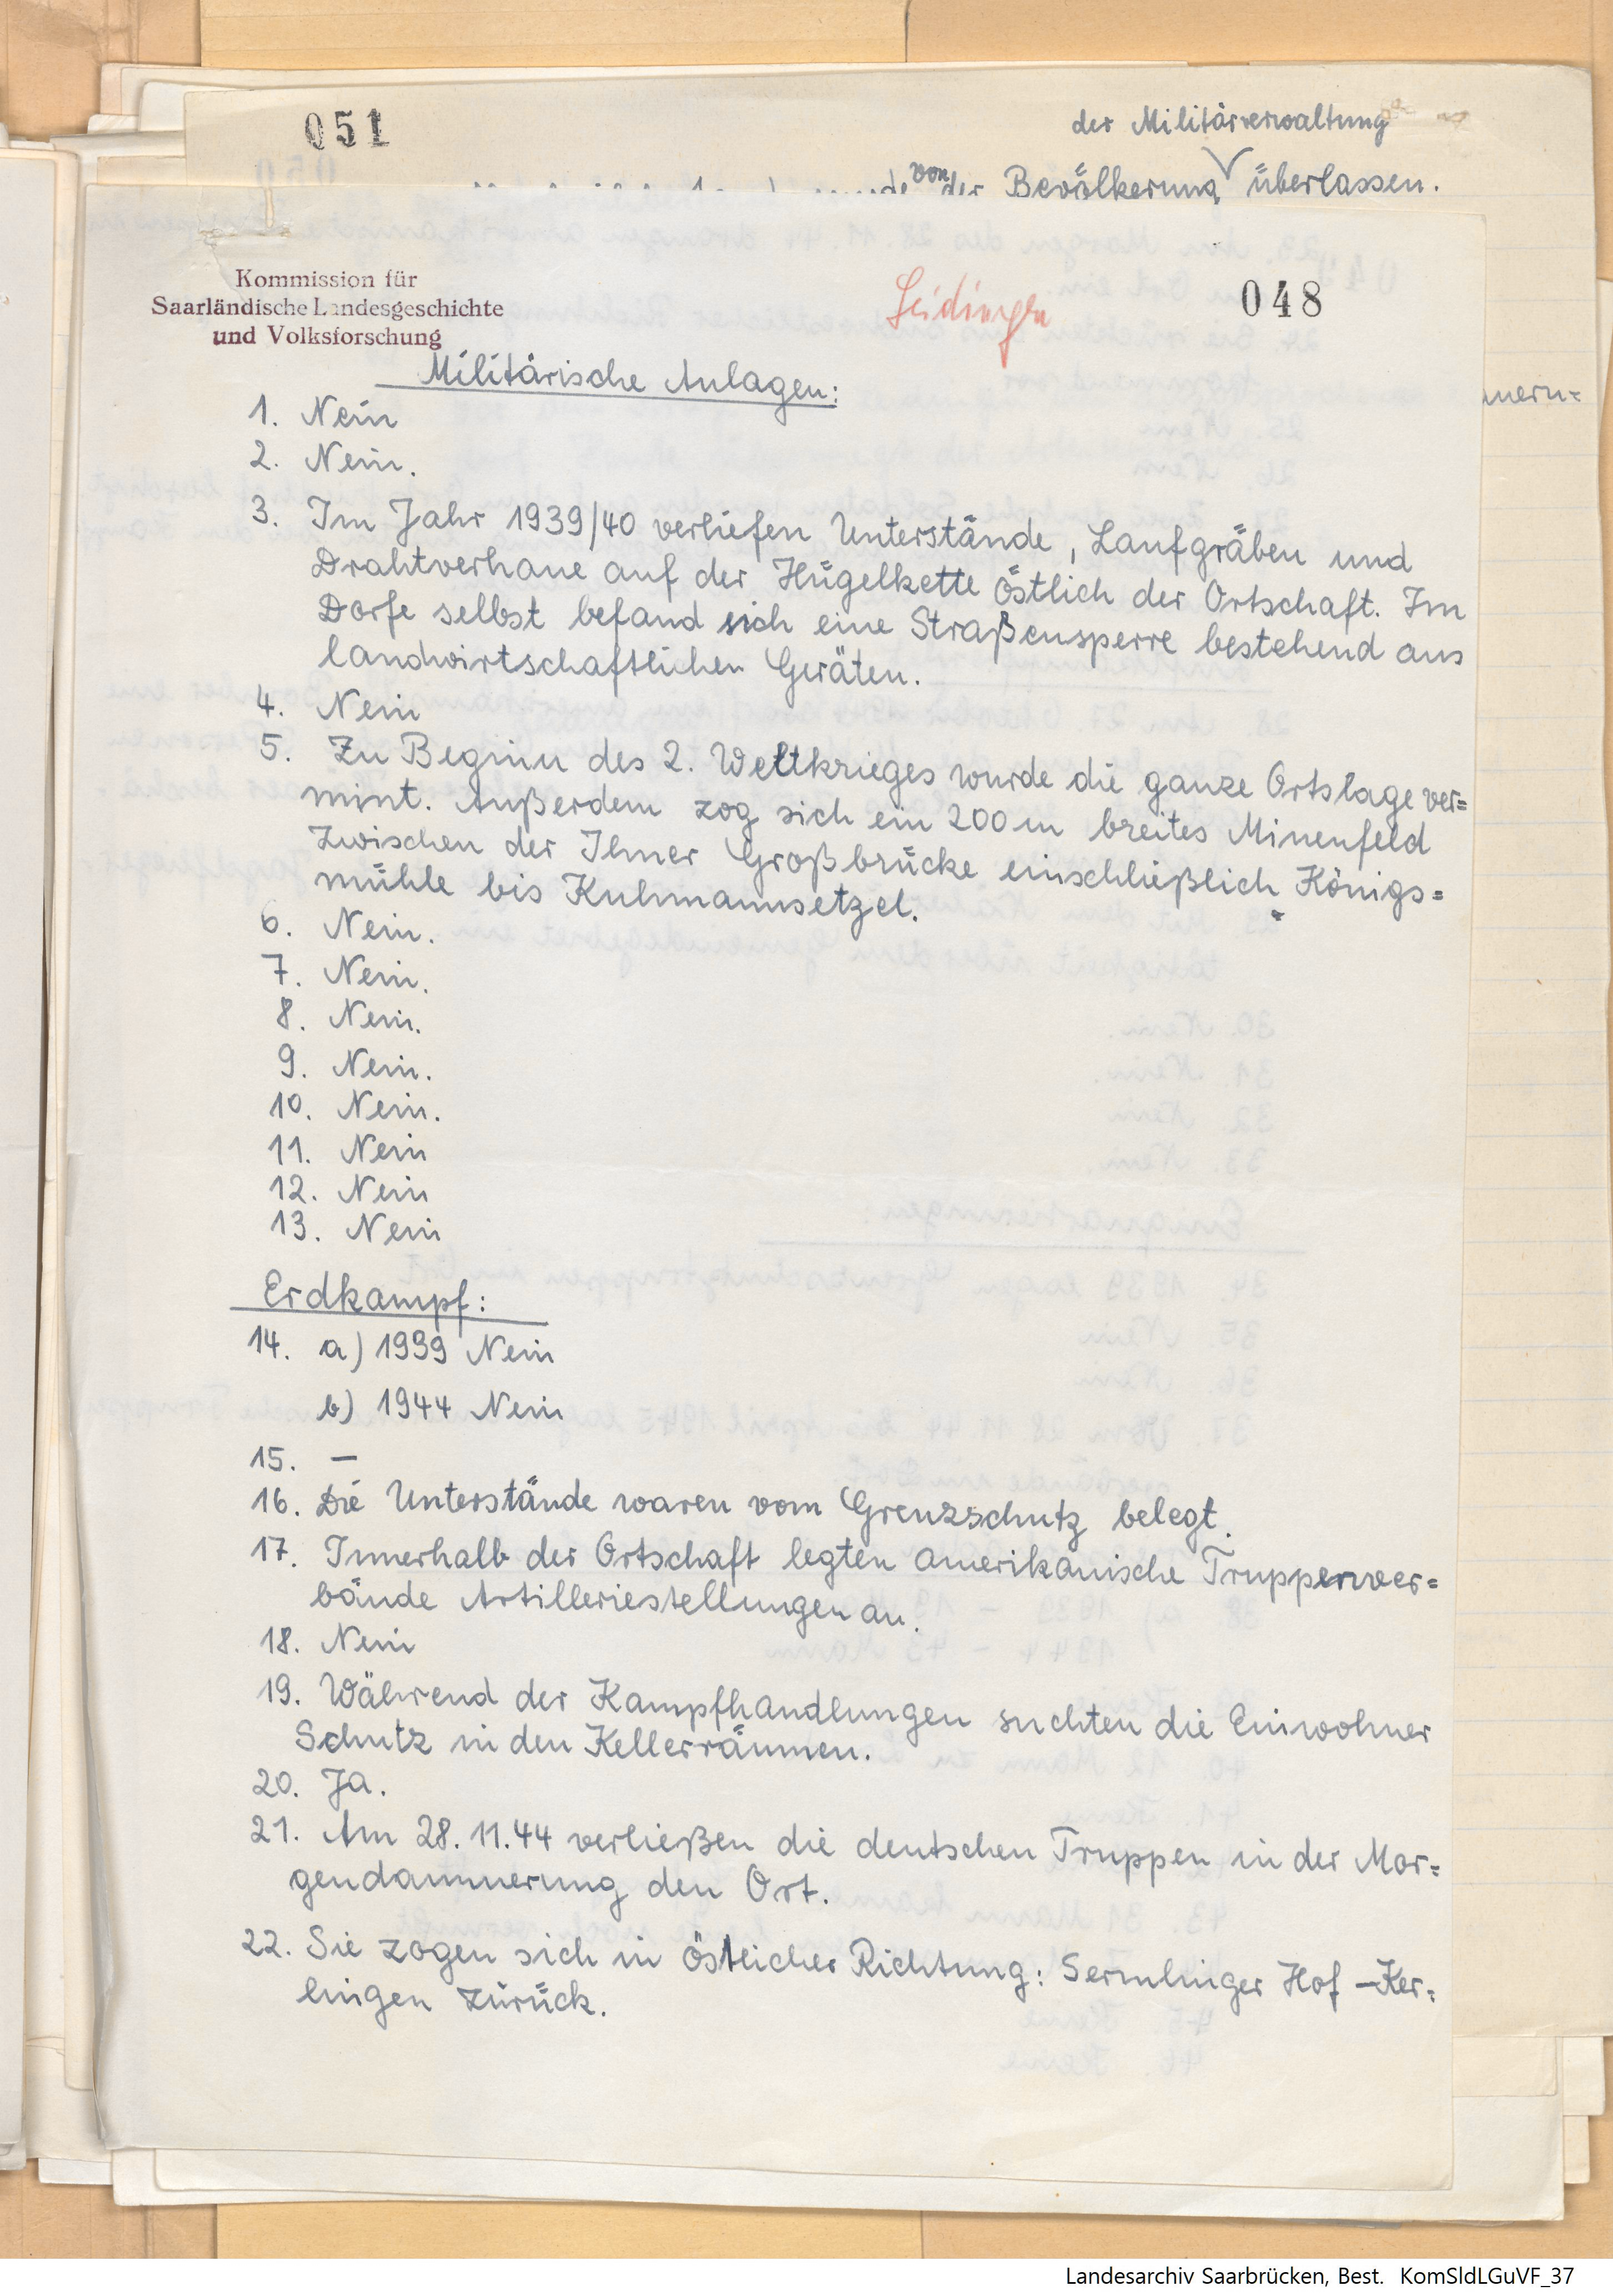 051
der Militärverwaltung
von der Bevölkerung überlassen.
Kommission für
Saarländische Landesgeschichte
und Volksforschung
Leidingen
048
Militärische Anlagen:
1. Nein
2. Nein.
3. Im Jahr 1939/40 verliefen Unterstände, Laufgräben und
Drahtverhaue auf der Hügelkette östlich der Ortschaft. Im
Dorfe selbst befand sich eine Straßensperre bestehend aus
landwirtschaftlichen Geräten.
4. Nein
5. Zu Beginn des 2. Weltkrieges wurde die ganze Ortslage ver=
mint. Außerdem zog sich ein 200 m breites Minenfeld
zwischen der Ihner Großbrücke einschließlich Königs=
mühle bis Kuhmannsetzel.
6. Nein.
7. Nein.
8. Nein.
9. Nein.
10. Nein.
11. Nein
12. Nein
13. Nein
Erdkampf:
14. a) 1939 Nein
b) 1944 Nein
15. –
16. Die Unterstände waren vom Grenzschutz belegt.
17. Innerhalb der Ortschaft legten amerikanische Truppenver=
bände Artilleriestellungen an.
18. Nein
19. Während der Kampfhandlungen suchten die Einwohner
Schutz in den Kellerräumen.
20. Ja.
21. Am 28.11.44 verließen die deutschen Truppen in der Mor=
gendammerung den Ort.
22. Sie zogen sich in östlicher Richtung: Sermlinger Hof – Ker=
lingen zurück.
Landesarchiv Saarbrücken, Best. KomSldLGuVF_37